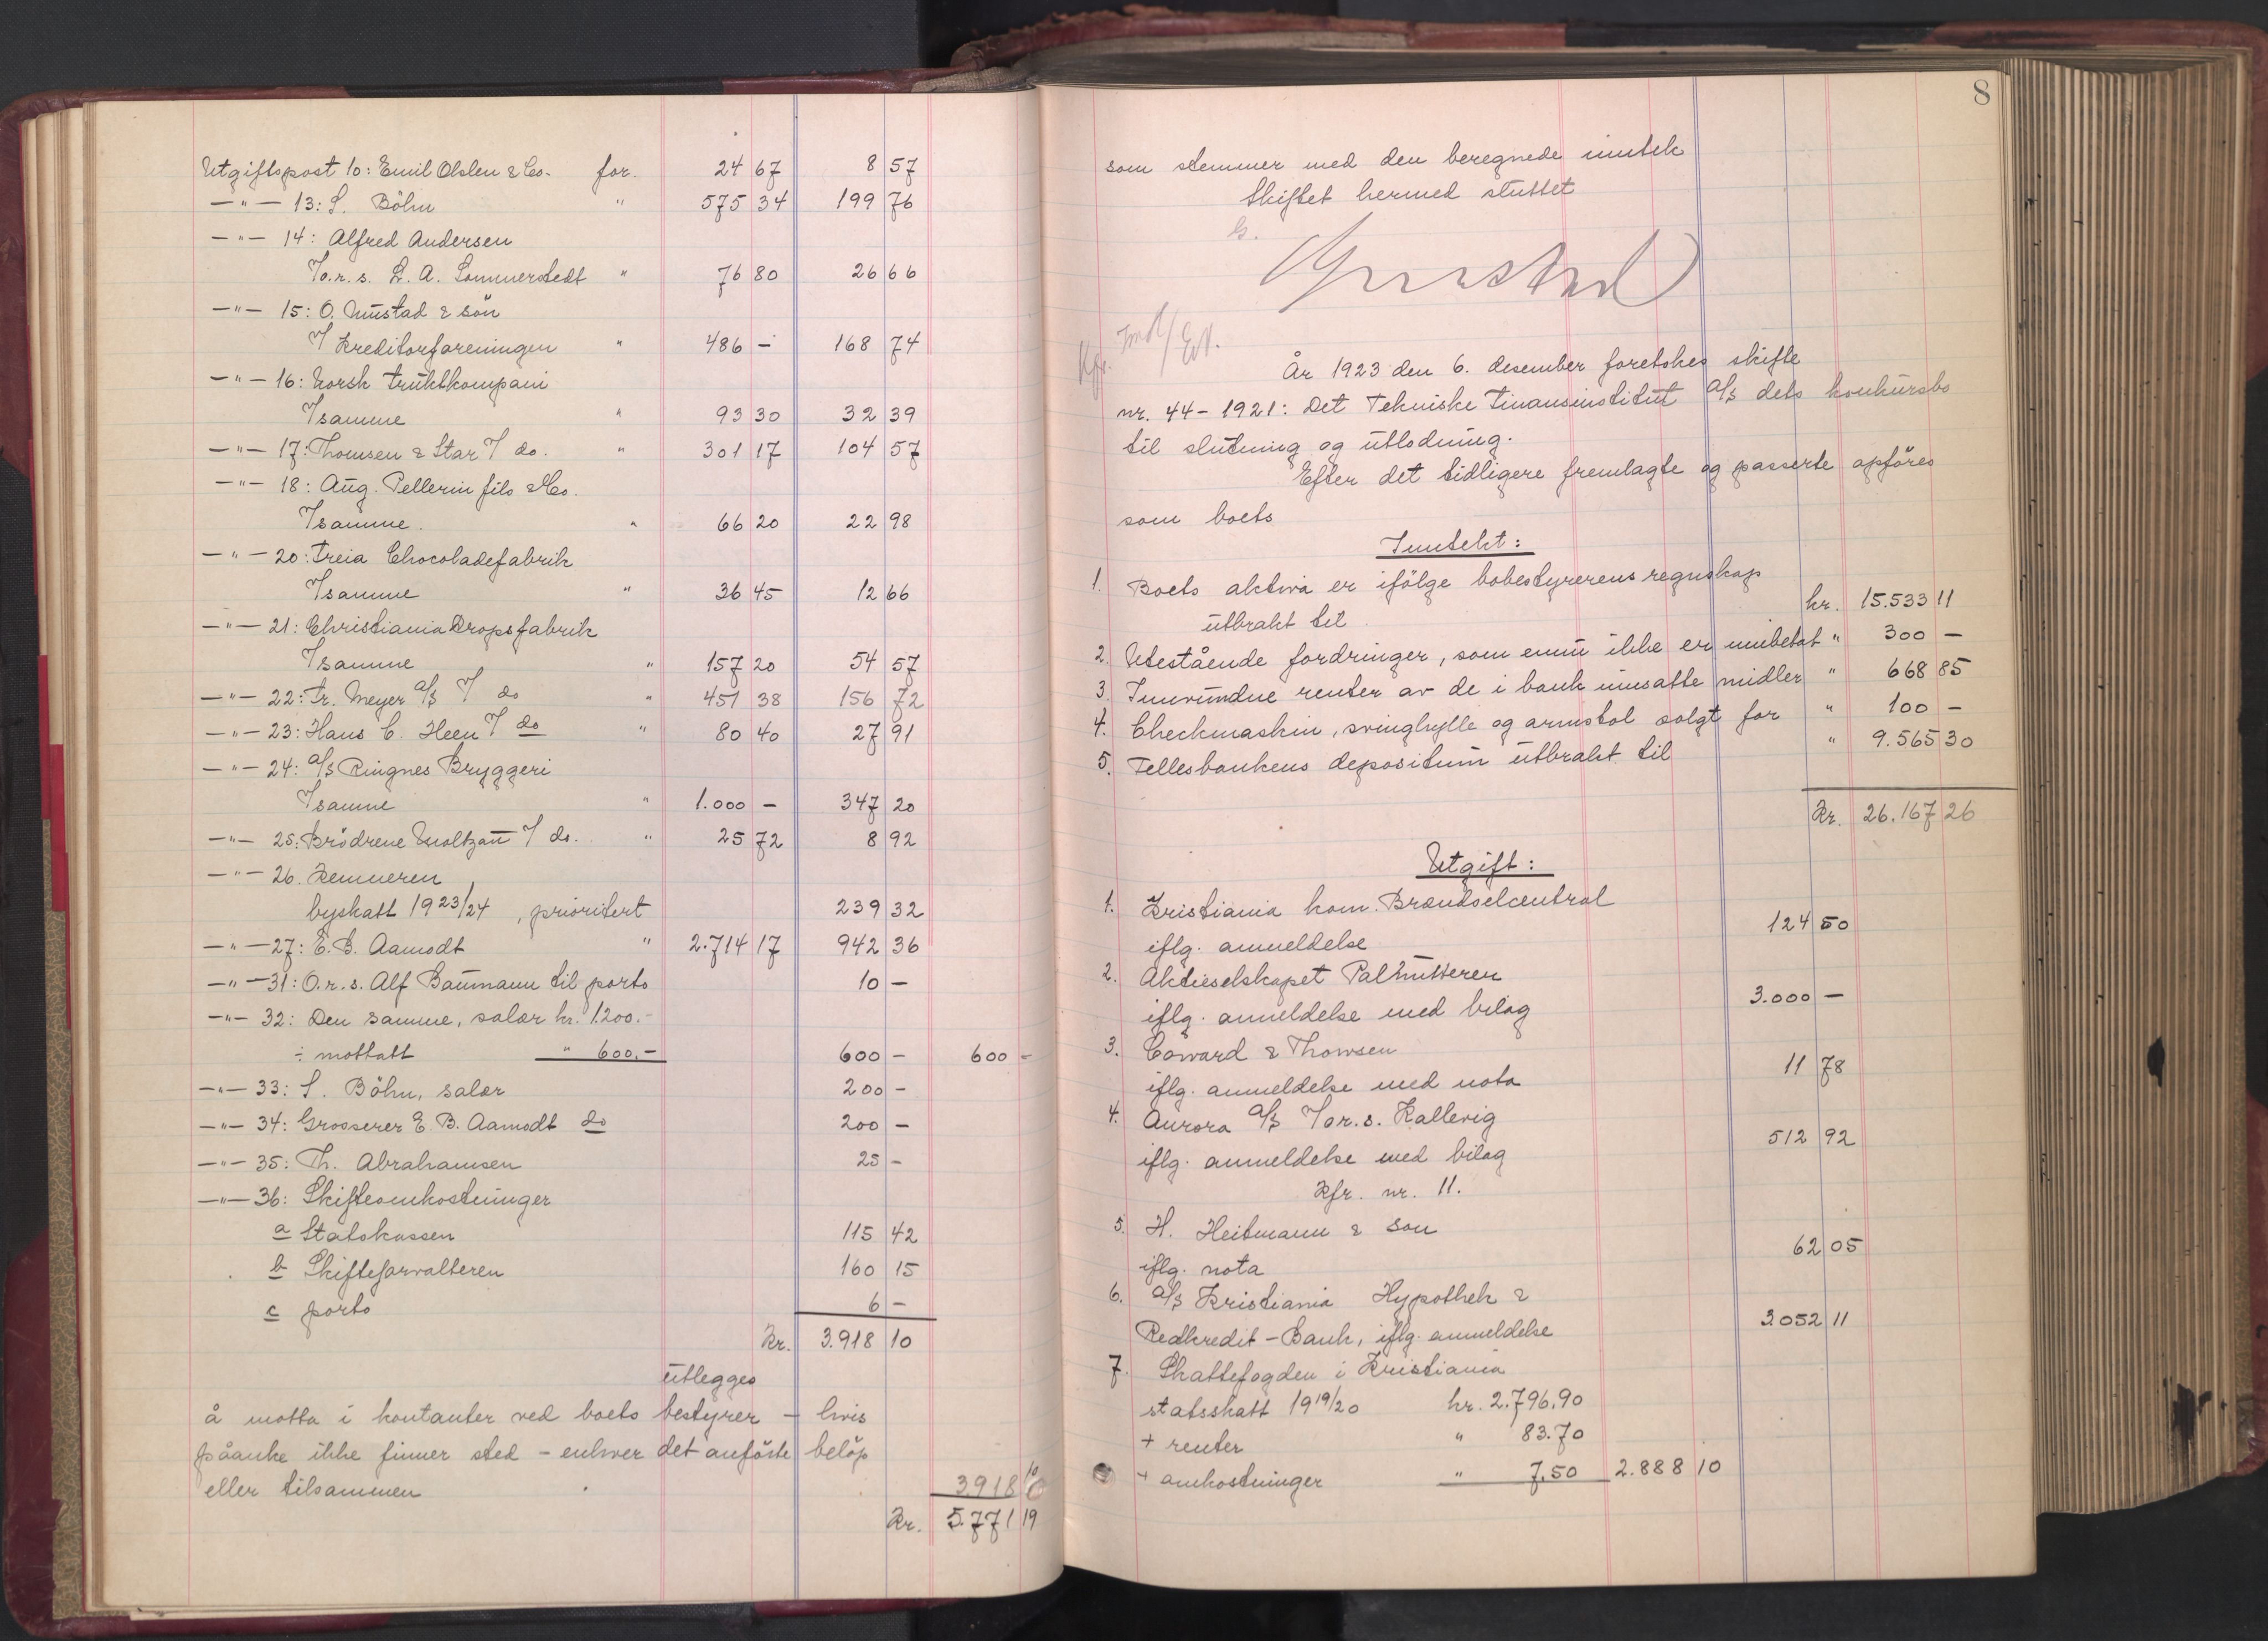 Utgiftspost 10: Emil Olslen & Co. for. 24 67 8 57
—"— 13: S. Böhn " 575 34 199 76
—"— 14: Alfred Andersen
T/o.r.s. L. A. Sommerstedt " 76 80 26 66
—"— 15: O. Mustad & sön
T/ Kreditorforeningen " 486 – 168 74
—"— 16: Norsk Fruktkompani
T/ samme " 93 30 32 39
—"— 17: Thomsen & Star T/ do. " 301 17 104 57
—"— 18: Aug. Pellerin fils & Co.
T/ samme. " 66 20 22 98
—"— 20: Freia Chocoladefabrik
T/ samme " 36 45 12 66
—"— 21: Christiania Dropsfabrik
T/ samme " 157 20 54 57
—"— 22: Fr. Meyer a/s T/ do " 451 38 156 72
—"— 23: Hans C. Heen T/ do " 80 40 27 91
—"— 24: a/s Ringnes Bryggeri
T/ samme " 1.000 – 347 20
—"— 25: Brödrene Moltzau T/ do. " 25 72 8 92
—"— 26. Kemneren
byskatt 1923/24, prioritert 239 32
—"— 27: E. B. Aamodt " 2.714 17 942 36
—"— 31: O.r.s. Alf Baumann til porto 10 –
—"— 32: Den samme, salær kr. 1200.-
÷ mottatt " 600.- 600 – 600 –
—"— 33: S. Böhn, salær 200 –
—"— 34: Grosserer E. B. Aamodt do 200 –
—"— 35: Th. Abrahamsen 25 –
—"— 36: Skifteomkostninger
a Statskassen 115 42
b Skifteforvalteren 160 15
c porto 6 –
Kr. 3.918 10
utlegges
å motta i kontanter ved boets bestyrer – hvis
påanke ikke finner sted – enhver det anförte belöp
eller tilsammen 3918 10
Kr. 5.771 19
8
som stemmer med den beregnede inntekt
Skiftet hermed sluttet
Kfr. Innt/Ert.
År 1923 den 6. desember foretokes skifte
nr. 44 – 1921: Det Tekniske Finansinstitut a/s dets konkursbo
til slutning og utlodning.
Efter det tidligere fremlagte og passerte opföres
som boets
Inntekt:
1. Boets aktiva er ifölge bobestyrerens regnskap
utbrakt til kr. 15.533 11
2. Utestående fordringer, som ennu ikke er innbetalt " 300 –
3. Innvundne renter av de i bank innsatte midler " 668 85
4. Checkmaskin, svinghylle og armstol solgt for " 100 –
5. Fellesbankens depositum utbrakt til " 9.565 30
Kr. 26.167 26
Utgift:
1. Kristiania kom. Brændselcentral
iflg. anmeldelse 124 50
2. Aktieselskapet Palmutteren
iflg. anmeldelse med bilag 3.000 –
3. Coward & Thowsen
iflg. anmeldelse med nota 11 78
4. Aurora a/s T/or.s. Kallevig
iflg. anmeldelse med bilag 512 92
Kfr. nr. 11.
5. H. Heitmann & son
iflg. nota 62 05
6. a/s Kristiania Hypothek &
Realkredit – Bank, iflg. anmeldelse 3052 11
7. Skattefogden i Kristiania
statsskatt 1919/20 kr. 2.796,90
+ renter " 83.70
+ omkostninger " 7.50 2.888 10